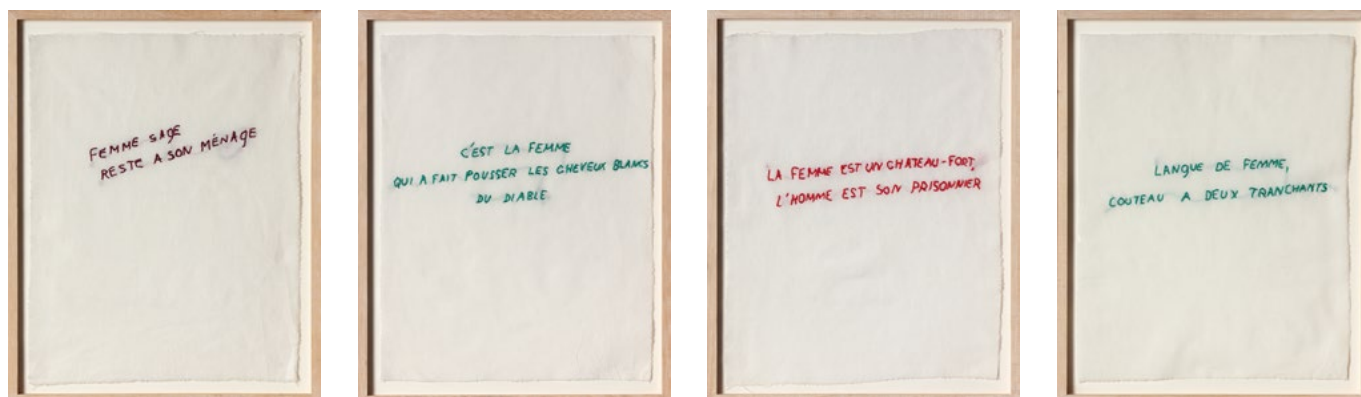 FEMME SAGE
RESTE A SON MÉNAGE
C'EST LA FEMME
QUI A FAIT POUSSER LES CHEVEUX BLANCS
DU DIABLE
LA FEMME EST UN CHATEAU-FORT,
L'HOMME EST SON PRISONNIER
LANGUE DE FEMME,
COUTEAU A DEUX TRANCHANTS